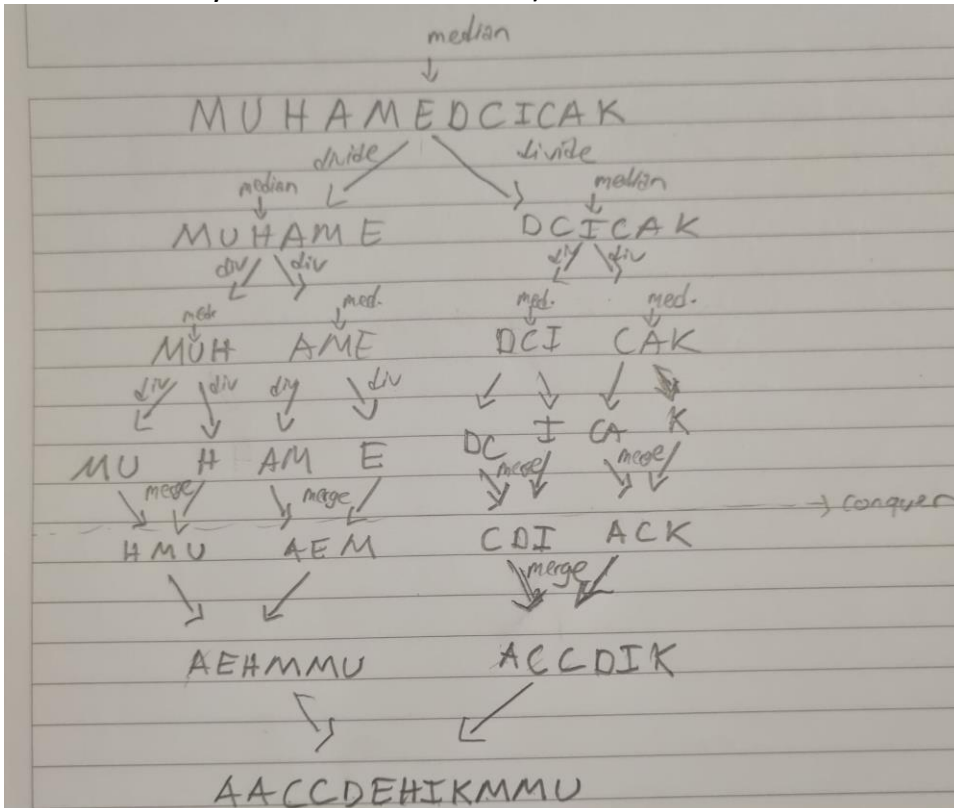 median
MUHAMEDCICAK
divide divide
median median
MUHAME DCICAK
div div div div
med. med. med.
MUH AME DCI CAK
div div div div
MU H AM E DC I CA K
merge merge merge merge
→ conquer
HMU AEM CDI ACK
merge
AEHMMU ACCDIK
AACCDEHIKMMU